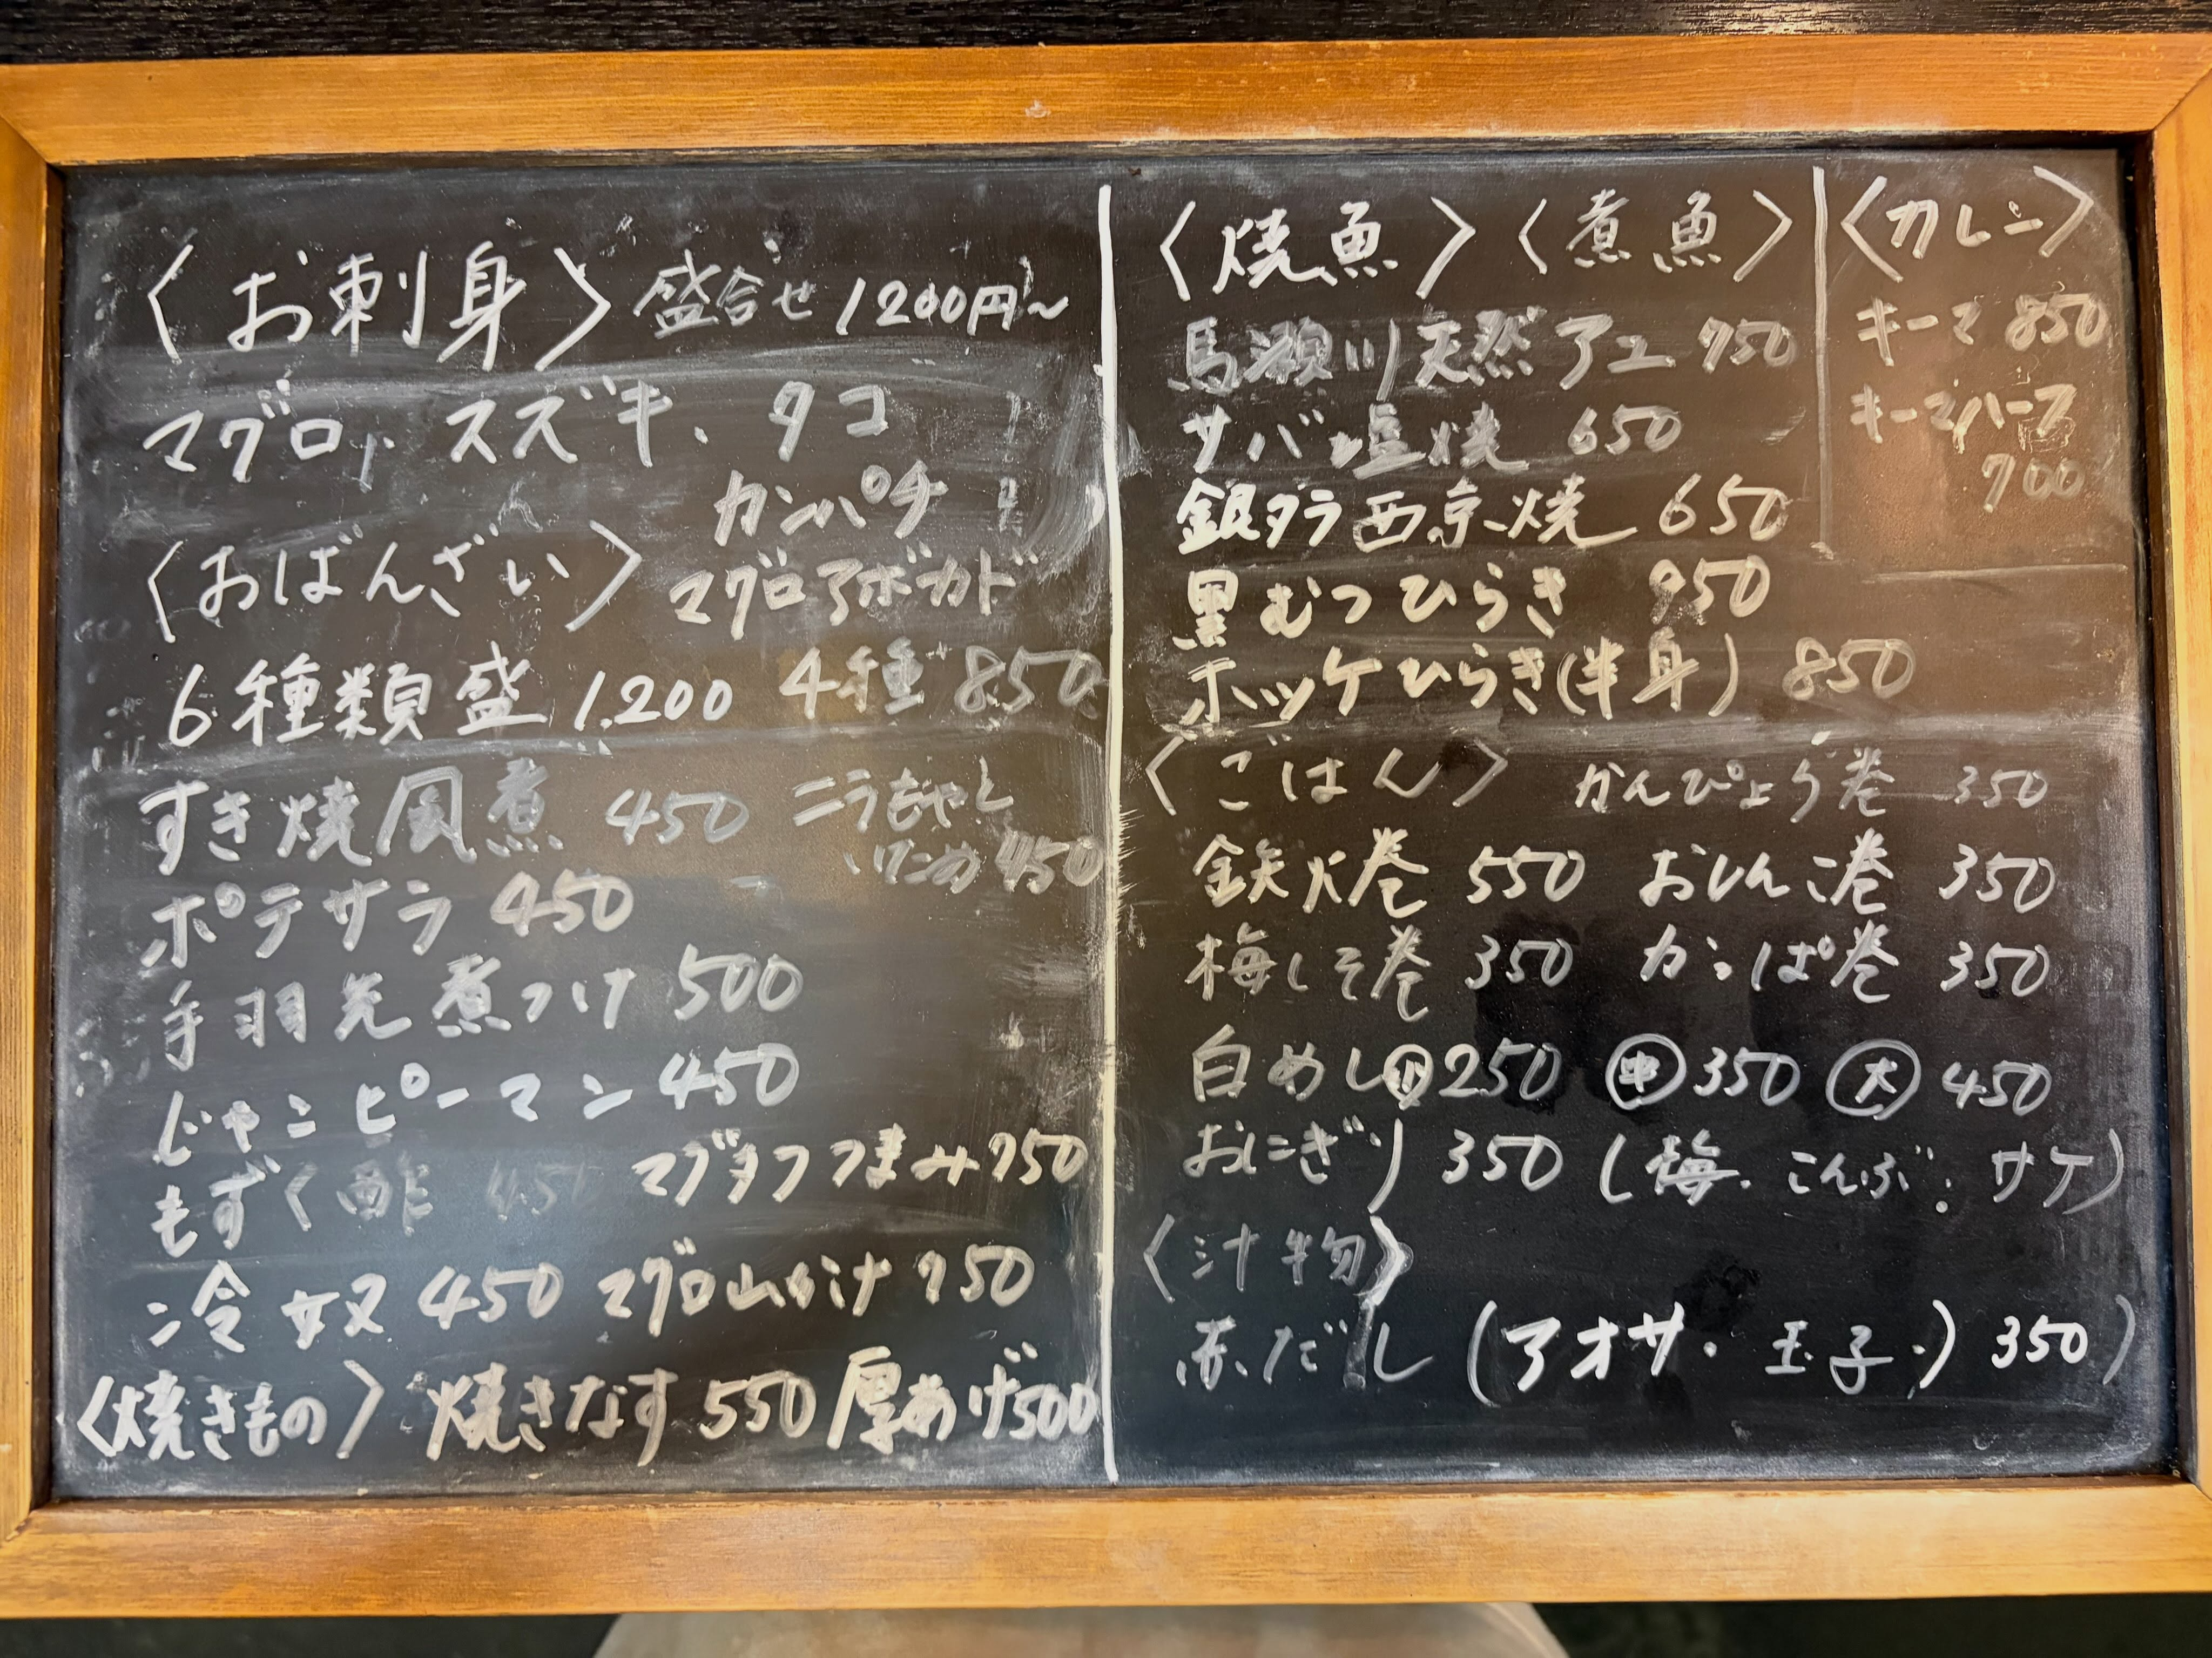 〈お刺身〉盛合せ 1200円~
マグロ、スズキ、タコ
カンパチ
マグロアボカド
〈おばんざい〉
6種類盛 1,200 4種 850
すき焼風煮 450 ニラもやし
いため 450
ポテサラ 450
手羽先煮つけ 500
じゃこピーマン 450
もずく酢 450 マグタクつまみ 750
冷奴 450 マグロ山かけ 750
〈焼きもの〉焼きなす 550 厚あげ 500
〈焼魚〉〈煮魚〉
馬瀬川天然アユ 950
サバ塩焼 650
銀タラ西京焼 650
黒むつひらき 950
ホッケひらき(半身) 850
〈カレー〉
キーマ 850
キーマハーフ
700
〈ごはん〉 かんぴょう巻 350
鉄火巻 550 おしんこ巻 350
梅しそ巻 350 かっぱ巻 350
白めし 小 250 中 350 大 450
おにぎり 350 (梅、こんぶ、サケ)
〈汁物〉
赤だし (アオサ・玉子・) 350